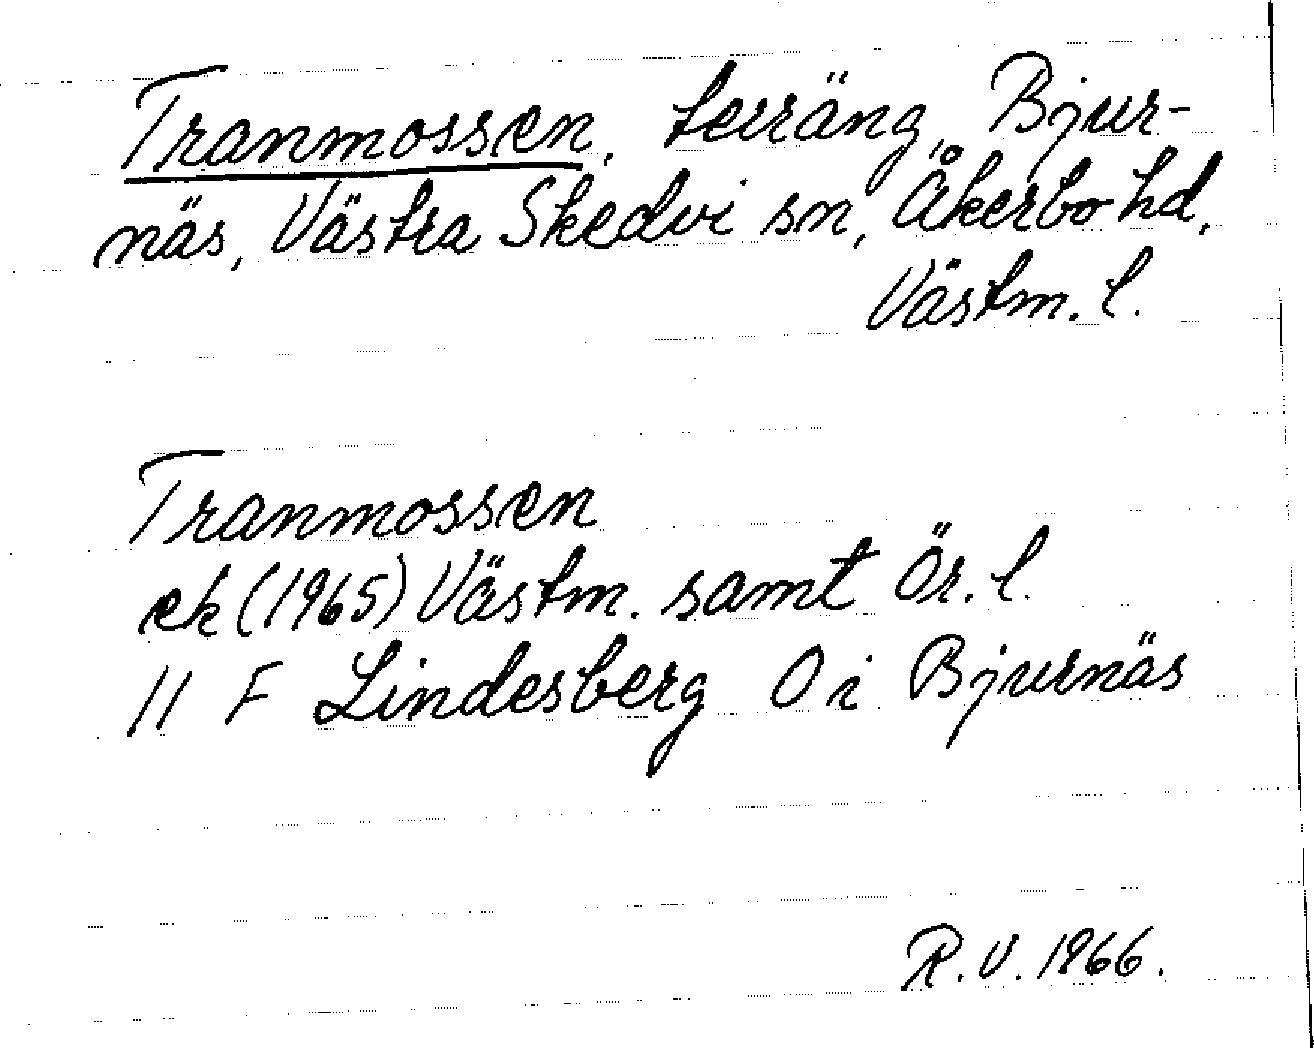 Tranmossen, terräng, Bjur-
näs, Västra Skedvi sn, Åkerbo hd,
Västm. l.
Tranmossen
ek (1965) Västm. samt Ör. l.
11 F Lindesberg 0 i Bjurnäs
R.V. 1966.